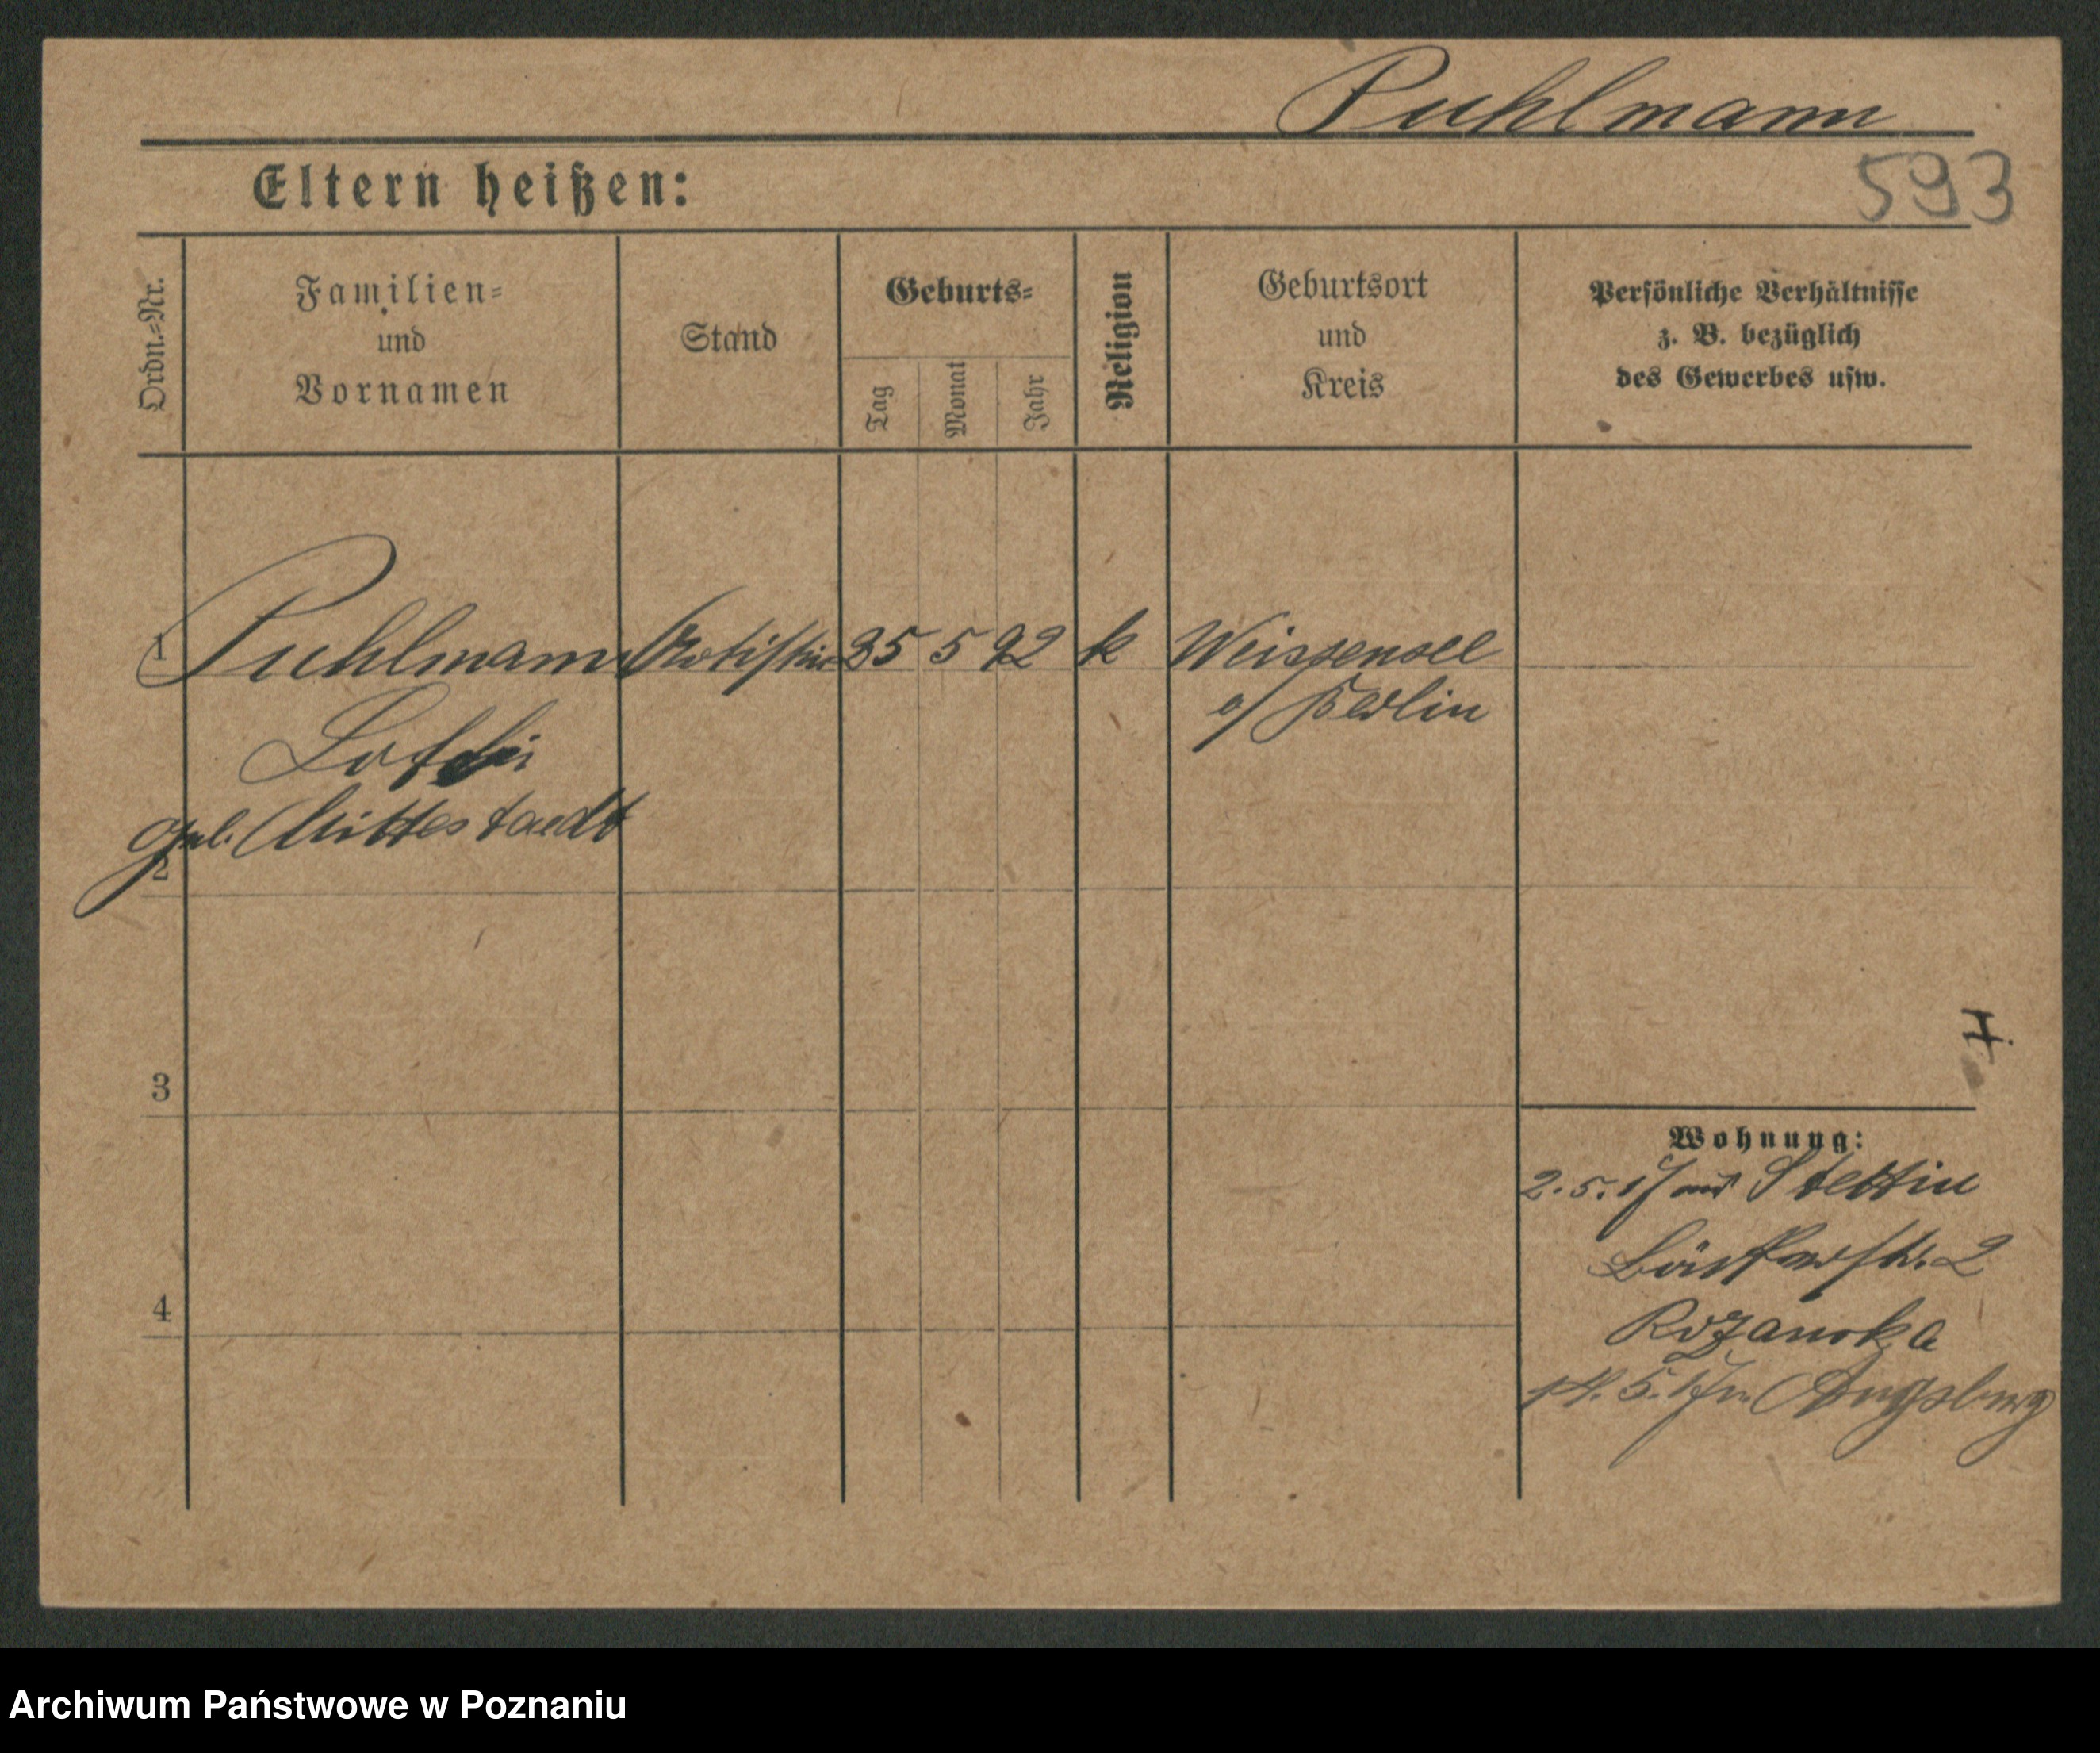 Puhlmann
593
Eltern heißen:
Ordn.-Nr.
Familien-
und
Vornamen
Stand
Geburts-
Tag
Monat
Jahr
Religion
Geburtsort
und
Kreis
Persönliche Verhältnisse
z. B. bezüglich
des Gewerbes usw.
1 Puhlmann Artistin 25 5 92 k Weissensee
Berlin
Mittestaedt
2
3
4
Wohnung:
2. 5. 17 aus Stettin
2
Rozanska
14. 5. 17 n. Augsburg
Archiwum Państwowe w Poznaniu